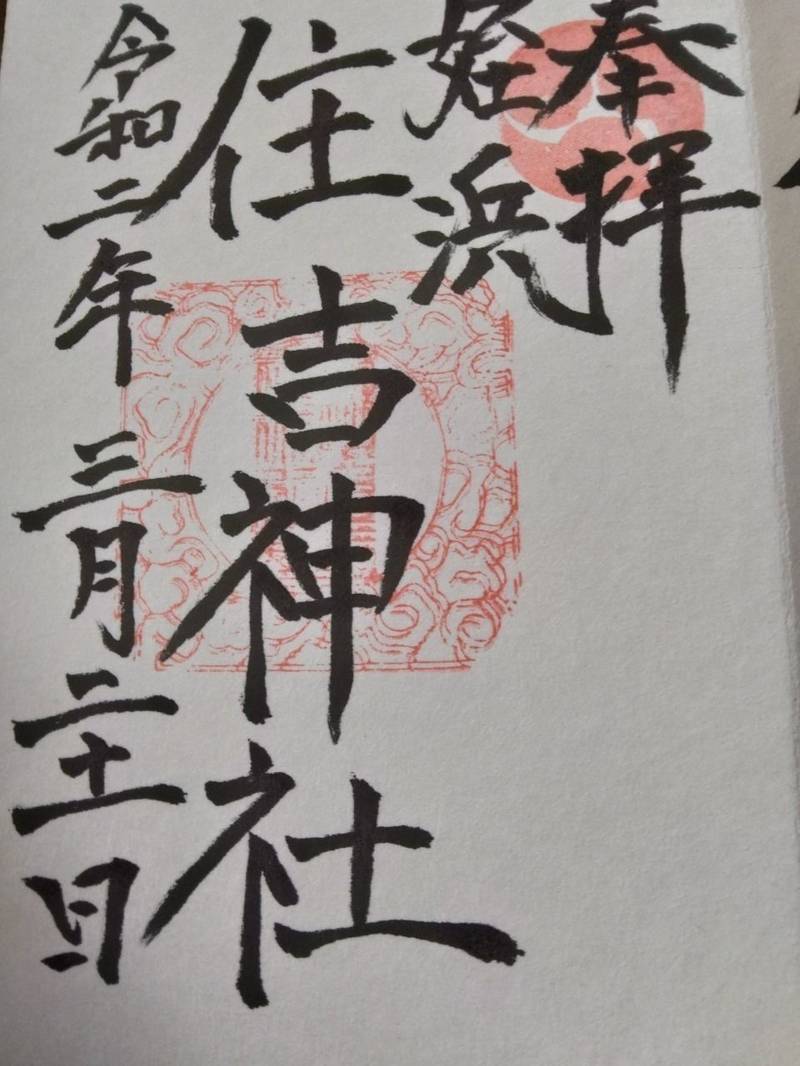 奉拝
姪浜
住吉神社
令和二年三月二十一日